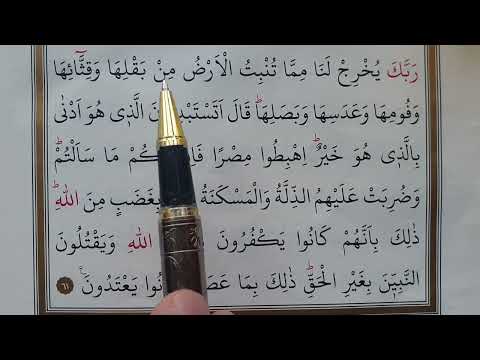 رَبَّكَ يُخْرِجْ لَنَا مِمَّا تُنْبِتُ الْاَرْضُ مِنْ بَقْلِهَا وَقِثَّٓائِهَا
وَفُومِهَا وَعَدَسِهَا وَبَصَلِهَاۜ قَالَ الَّذ۪ى هُوَ اَدْنٰى
بِالَّذ۪ى هُوَ خَيْرٌۜ اِهْبِطُوا مِصْرًا مَا سَاَلْتُمْۜ
وَضُرِبَتْ عَلَيْهِمُ الذِّلَّةُ وَالْمَسْكَنَةُ بِغَضَبٍ مِنَ اللهِۜ
ذٰلِكَ بِاَنَّهُمْ كَانُوا يَكْفُرُونَ اللهِ وَيَقْتُلُونَ
النَّبِيّ۪نَ بِغَيْرِ الْحَقِّۜ ذٰلِكَ بِمَا يَعْتَدُونَ۟ ٦١